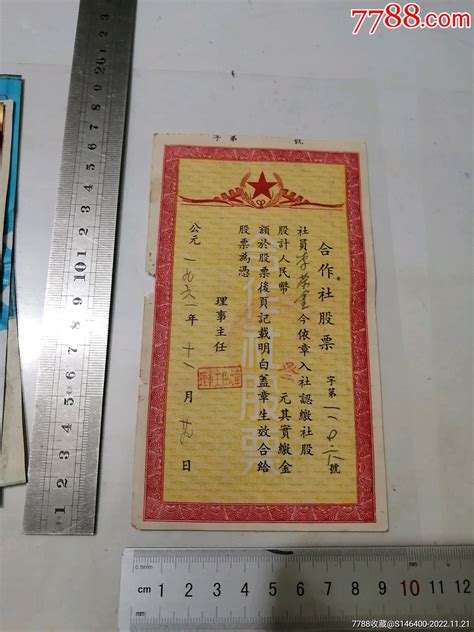 7788.com
字第 號
合作社股票
字第一一〇六號
社員李榮金今依章入社認繳社股
股計人民幣 元其實繳金
額於股票後頁記載明白盖章生效合給
股票為憑
理事主任
公元一九六一年十一月 日
合作社股票
1 2 3 4 5 6 7 8 9 10 1 2 3 4 5 6 7 8 9 20 1 2
0.5mm
cm 1 2 3 4 5 6 7 8 9 10 11 12
7788收藏@S146400-2022.11.21